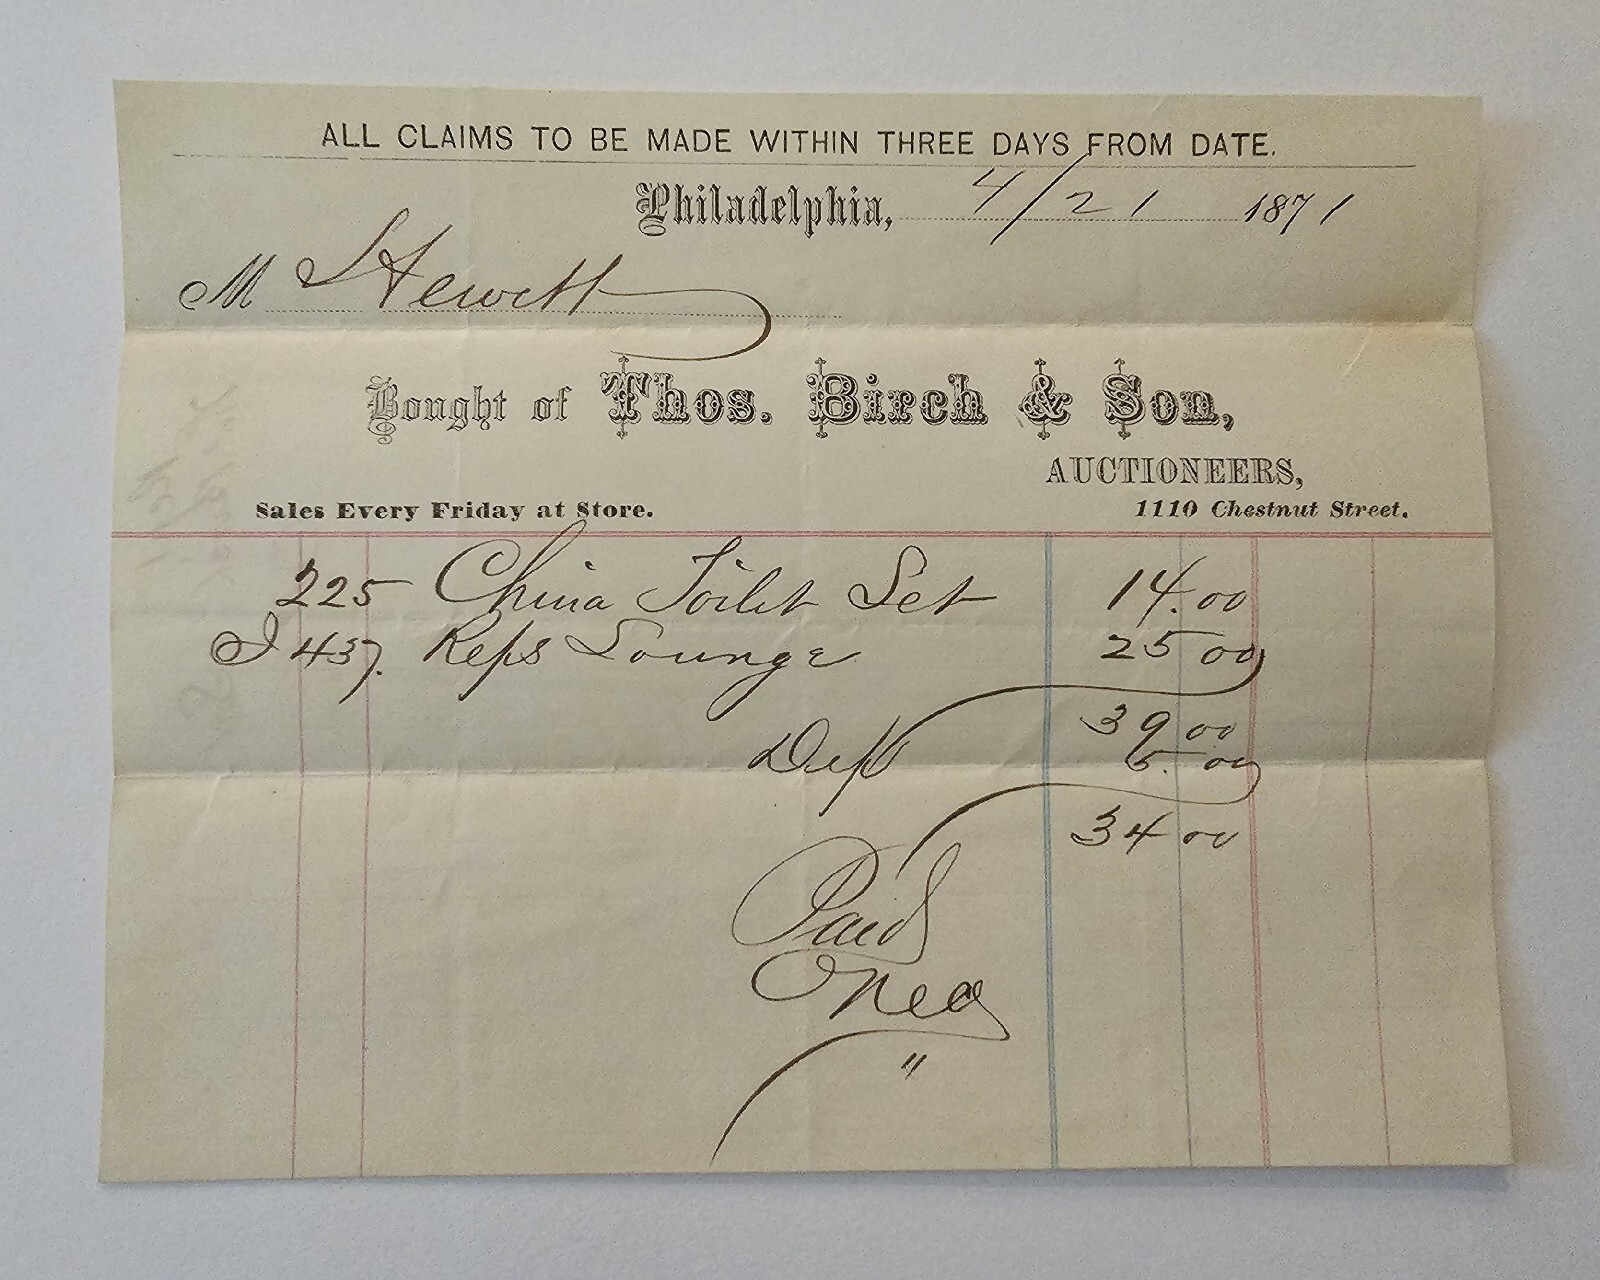 ALL CLAIMS TO BE MADE WITHIN THREE DAYS FROM DATE.
Philadelphia, 4/21 1871
M Hewett
Bought of Thos. Birch & Son,
AUCTIONEERS,
Sales Every Friday at Store. 1110 Chestnut Street.
225 China Toilet Set 14.00
437. Reps Lounge 25 00
39 00
Dep 5.00
34 00
Paid
"